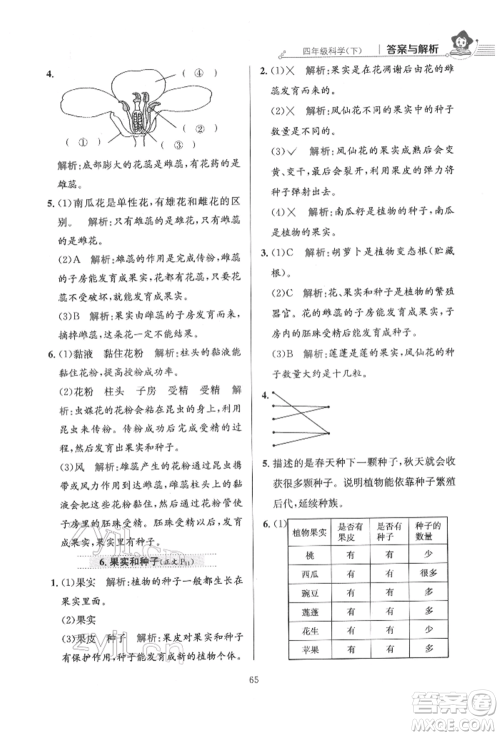 四年级科学(下) 答案与解析
4.
( ④ )
( ① ) ( ② ) ( ③ )
解析:底部膨大的花蕊是雌蕊,有花药的是
雄蕊。
5. (1)南瓜花是单性花,有雄花和雌花的区
别。 解析:有雌蕊的是雌花。
(2)A 解析:昆虫活动能完成传粉,雌
蕊的子房能发育成果实。
(3)B 解析:雌花的子房能发育成果实,
摘掉雌蕊,子房无法发育成果实。
6. (1)黏液 黏住花粉 解析:柱头的黏液能
黏住花粉,提高传粉率。
(2)花粉 柱头 子房 受精 受精 解
析:虫媒花的花粉黏在昆虫的身体上,可以
利用昆虫的活动完成传粉,与子房的胚珠
受精发育成果实。
(3)风 解析:雄蕊的花粉受到风的影响
和风力作用会随风飘动,当飘动到雌蕊时,
黏液会把花粉黏住,花粉黏住后,花粉与子
房的胚珠受精,受精后发育成果实。
6. 果实和种子(正文P11)
1. (1)果实 解析:植物的种子一般都生长在
果实里。
(2)果实
(3)果皮 种子 解析:果皮对果实和种子
有保护作用,种子能发育成新的植物。
2. (1)× 解析:果实是在花凋谢后由花的雌
蕊发育而来的。
(2)× 解析:不同的凤仙花的果实中的种子
数量是不同的。
(3)✓ 解析:凤仙花的果实成熟后会突
然炸开,里面的种子利用果皮的弹力将种
子弹射出去。
(4)× 解析:南瓜籽是南瓜的种子,南
瓜是果实。
3. (1)C 解析:胡萝卜是植物变态根(贮藏
根)。
(2)B 解析:花、果实和种子是植物的繁殖
器官。花的雌蕊的子房能发育成果实,
子房里的胚珠能发育成种子。
(3)B 解析:莲蓬是莲的果实。凤仙花的果
实种子数量大约是十几粒。
4.
5. 描述的是春天种下一颗种子,秋天就会收
获很多种子。说明植物能依靠种子繁殖
后代,延续种族。
6. (1)
植物果实 是否有果皮 是否有种子 种子的数量
桃 有 有 少
西瓜 有 有 很多
豌豆 有 有 多
莲蓬 有 有 多
花生 有 有 少
苹果 有 有 少
65